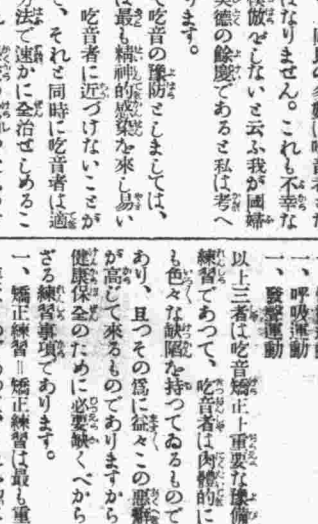 はなりません。これも不幸な
模倣をしないと云ふ我が國婦
美德の餘慶であると私は考へ
ります。
て吃音の豫防としましては、
は最も精神的感染を來し易い
吃音者に近づけないことが
、それと同時に吃音者は適
方法で速かに全治せしめるこ
一、呼吸運動
一、發聲運動
以上三者は吃音矯正上重要な豫備
練習であつて、吃音者は肉體的に
も色々な缺陷を持つてゐるもので
あり、且つその爲に益々この惡癖
が高じて來るものでありますから
健康保全のために必要缺くべから
ざる練習事項であります。
一、矯正練習=矯正練習は最も重